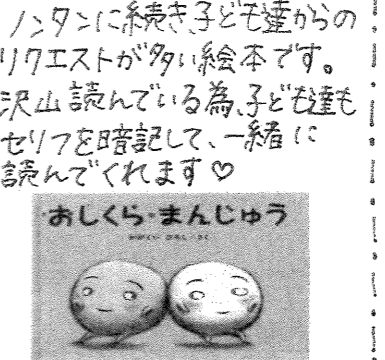 ノンタンに続き、子ども達からの
リクエストが多い絵本です。
沢山読んでいる為、子ども達も
セリフを暗記して、一緒に
読んでくれます♡
おしくら・まんじゅう
かがくい ひろし・さく